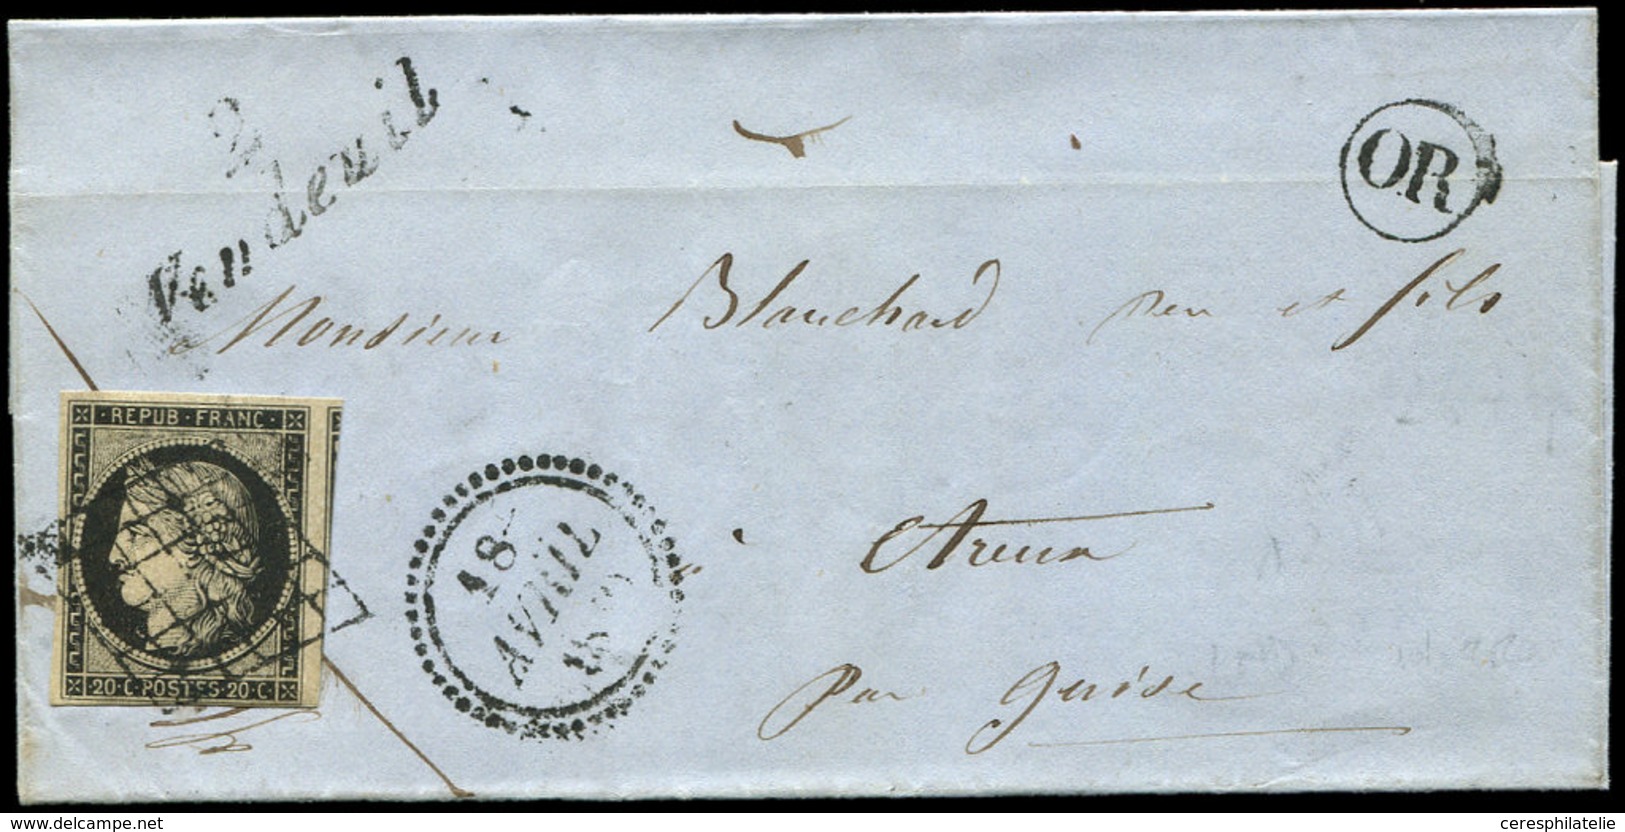 2
Vendeuil
OR
Monsieur Blanchard et fils
REPUB · FRANC ·
20 · C · POSTES · 20 · C ·
18
AVRIL
à
par Guise
delcampe.net
ceresphilatelie